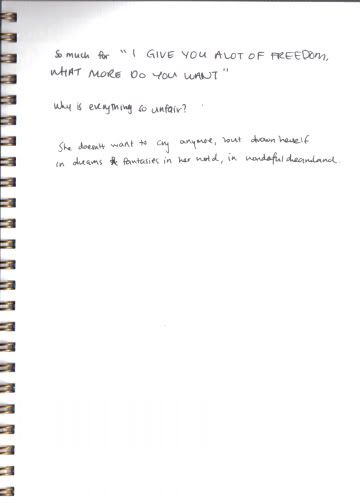 So much for "I GIVE YOU ALOT OF FREEDOM,
WHAT MORE DO YOU WANT"
Why is everything so unfair?
She doesn't want to cry anymore, but drown herself
in dreams & fantasies in her world, in wonderful dreamland.